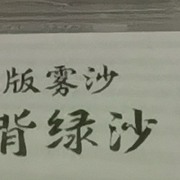 版雾沙
背绿沙